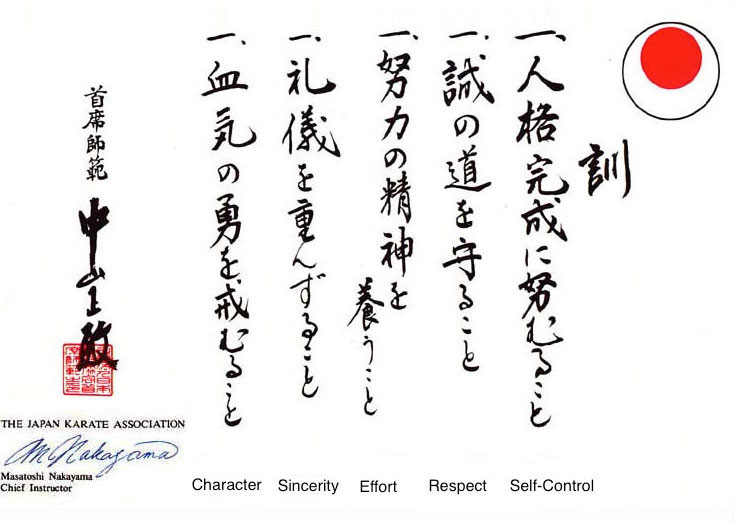 訓
一、人格完成に努むること
一、誠の道を守ること
一、努力の精神を養うこと
一、礼儀を重んずること
一、血気の勇を戒むること
首席師範
中山正敏
THE JAPAN KARATE ASSOCIATION
M Nakayama
Masatoshi Nakayama
Chief Instructor
Character Sincerity Effort Respect Self-Control